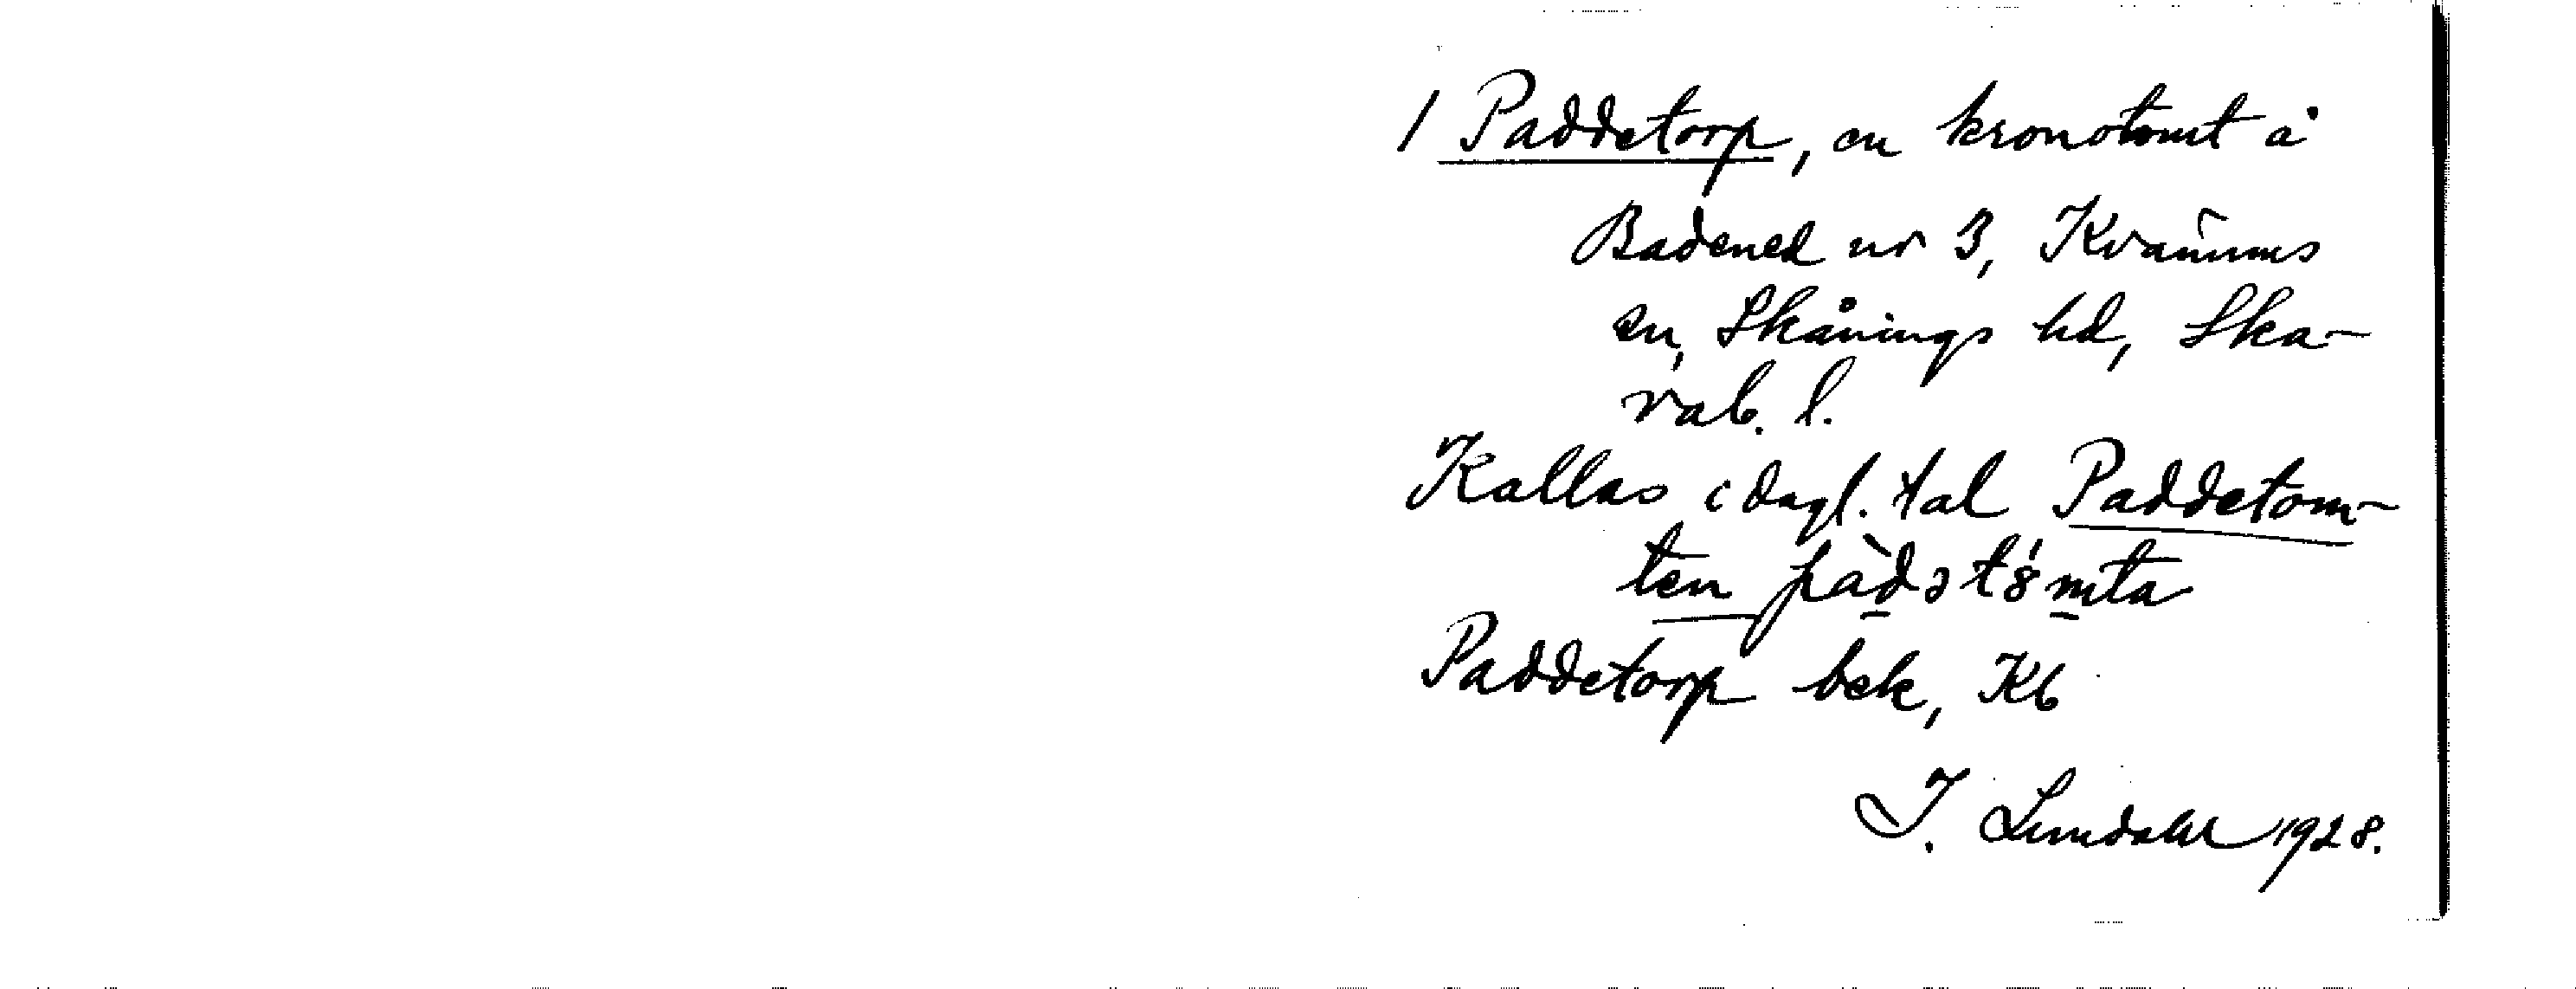 1 Paddetorp, en kronotomt å
Badened nr 3, Kvänums
sn, Skånings hd, Ska-
rab. l.
Kallas i dagl. tal Paddetom-
ten pàdət8́mta
Paddetorp bek, Kb
J. Lundahl 1928.